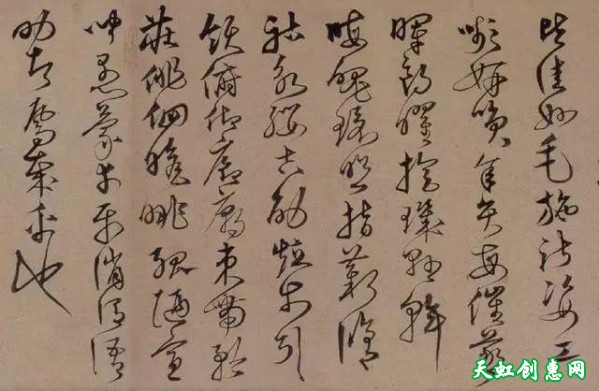 皆佳妙毛施淑姿工
嚬妍笑年矢每催羲
暉朗曜璇璣懸斡
晦魄環照指薪脩
祜永綏吉劭矩步引
領俯仰廊廟束帶矜
莊徘徊瞻眺孤陋寡
聞愚蒙等誚謂語
助者焉哉乎也
天虹创惠网